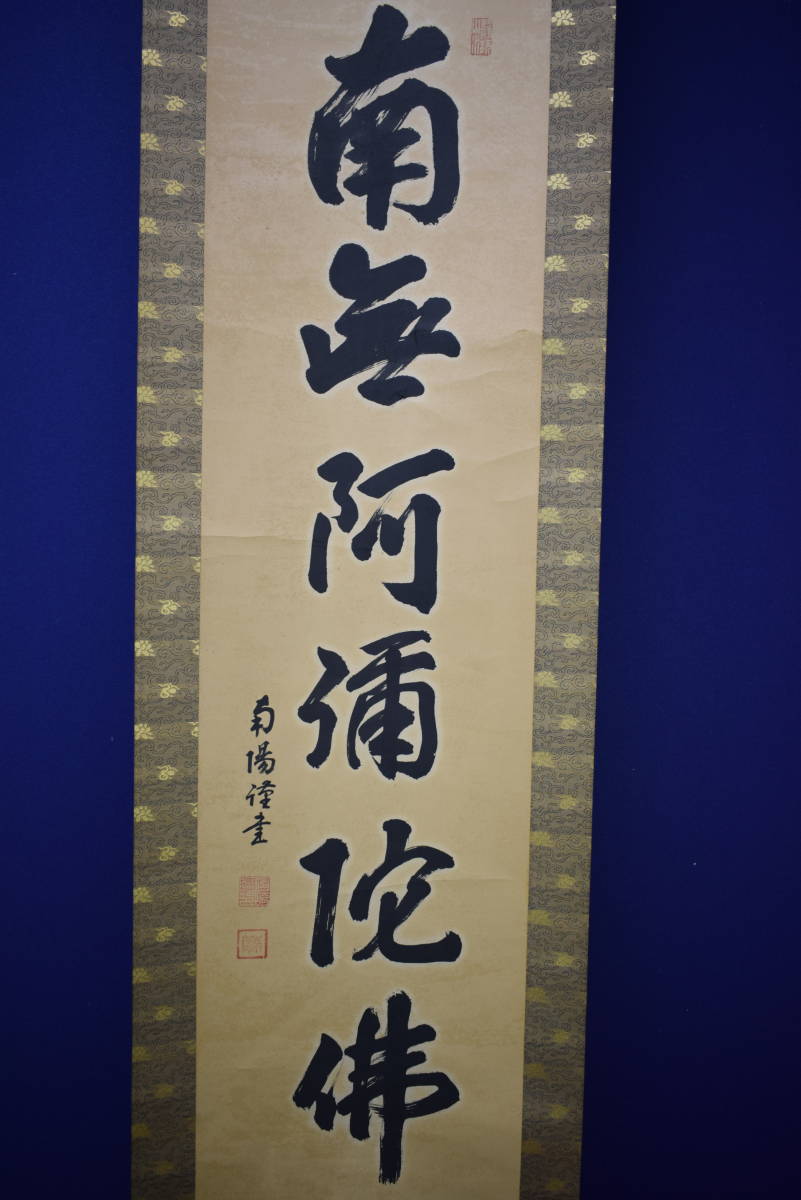 南無阿彌陀佛
南陽謹書